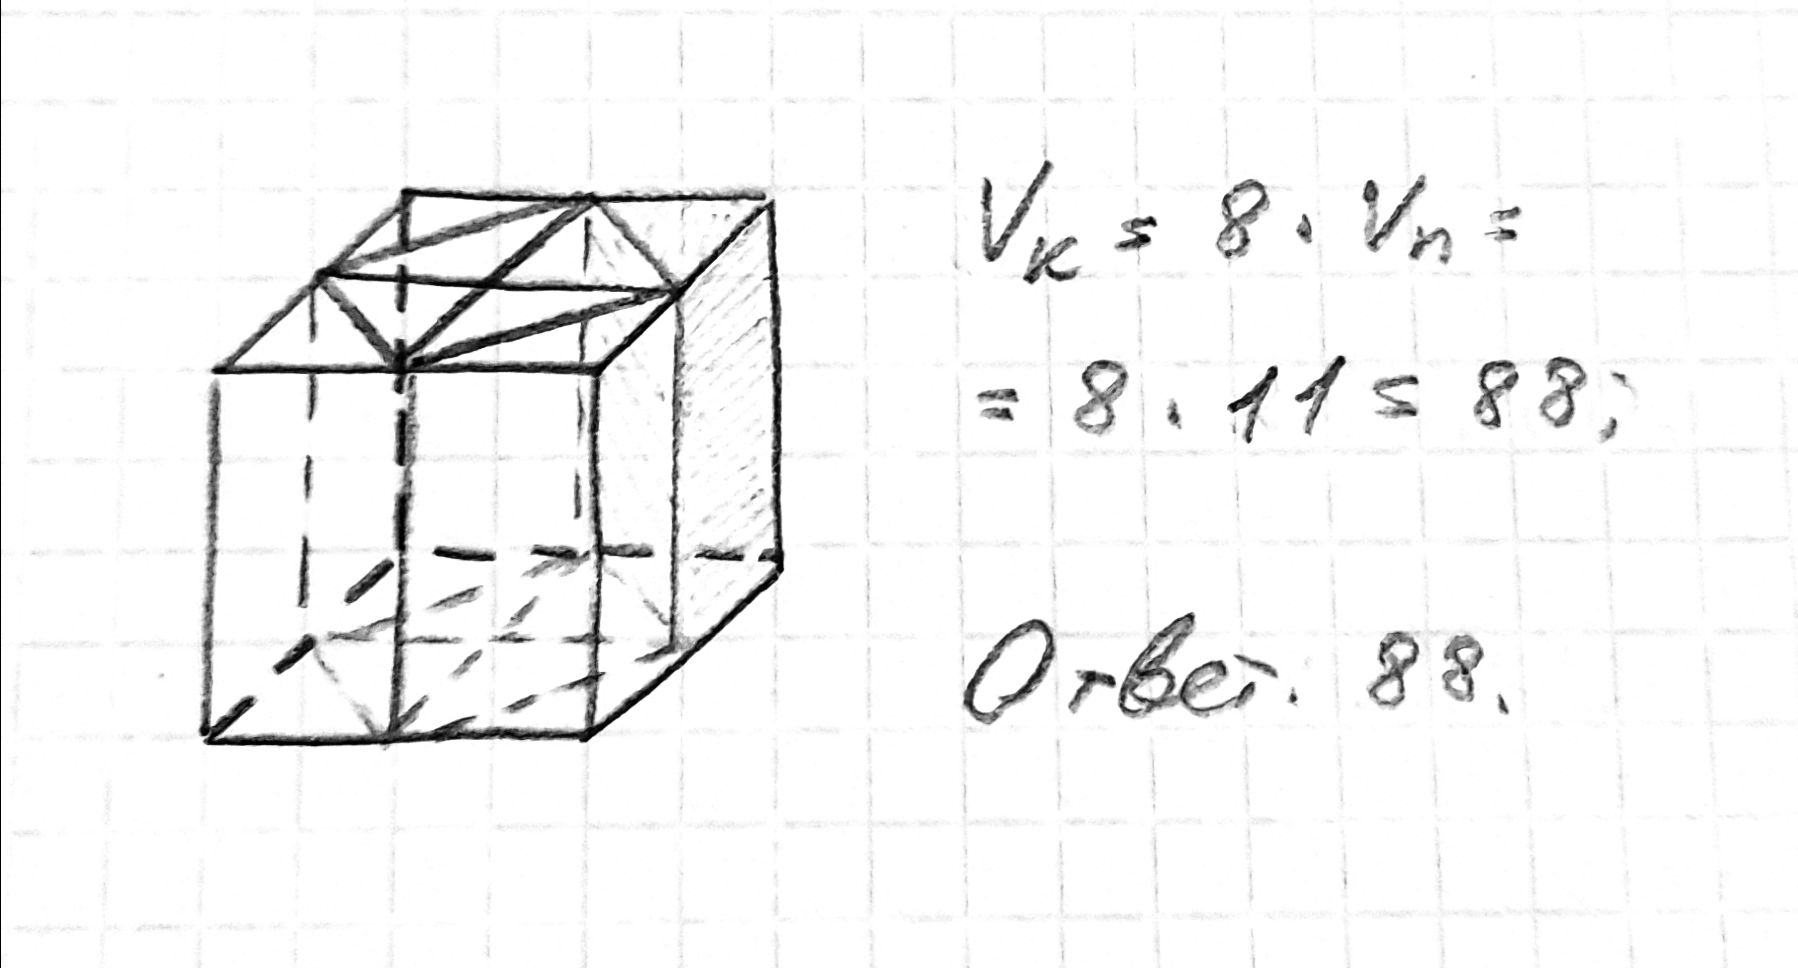 Vк = 8 · Vп =
= 8 · 11 = 88;
Ответ: 88.